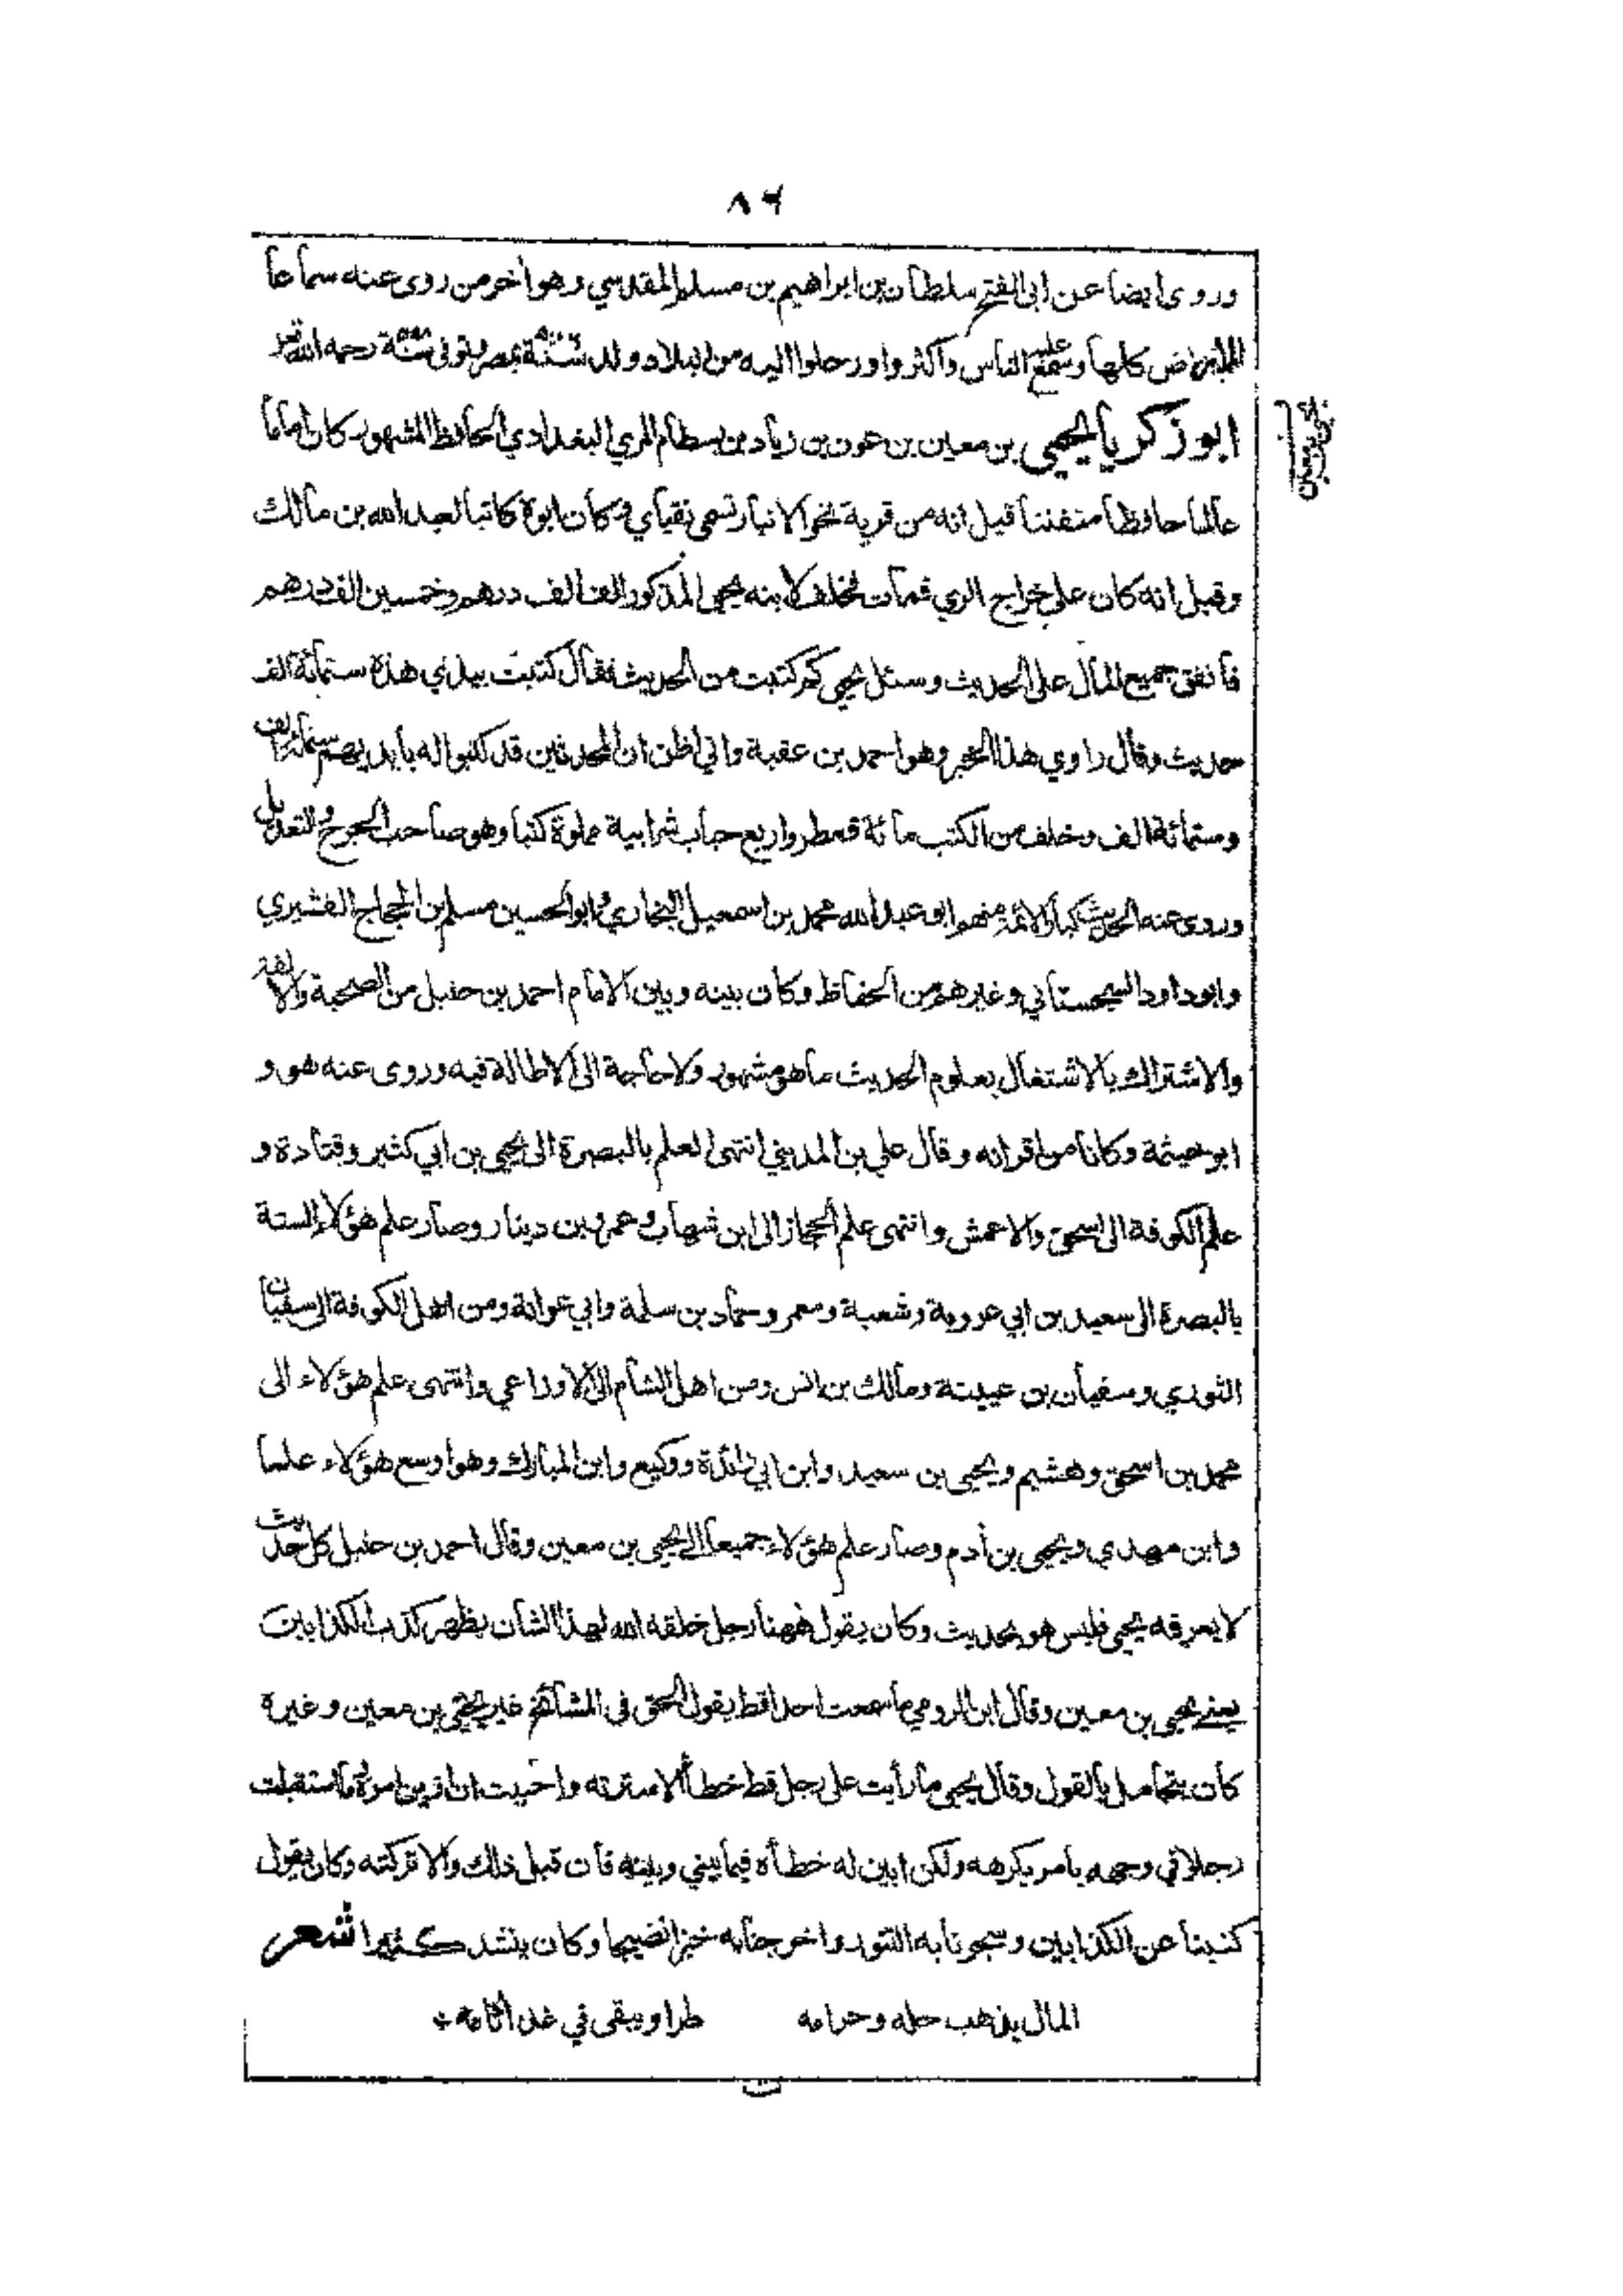 ٨٤
وروى ايضا عن ابى الفتح سلطان بن ابراهيم بن مسلم المقدسي وهو اخر من روى عنه سماعا
كلها وسمع عليه الناس واكثروا ورحلوا اليه من البلاد ولد بمصر وتوفى رحمه الله تع
ابو زكريا يحيى بن معين بن عون بن زياد بن بسطام المري البغدادي الحافظ المشهور كان اماما
يحيى بن معين
عالما حافظا متفننا قيل انه من قرية نحو الانبار تسمى نقياي وكان ابوه كاتبا لعبد الله بن مالك
وقيل انه كان على خراج الري فمات فخلف لابنه يحيى المذكور الف الف درهم وخمسين الف درهم
فانفق جميع المال على الحديث وسئل يحيى كم كتبت من الحديث فقال كتبت بيدي هذه ستمائة الف
حديث وقال راوي هذا الخبر وهو احمد بن عقبة واني اظن ان المحدثين قد كتبوا له بايديهم ستمائة الف
وستمائة الف وخلف من الكتب مائة قمطر واربع حباب شرابية مملوة كتبا وهو صاحب الجرح والتعديل
وروى عنه الحديث كبار الائمة منهم ابو عبد الله محمد بن اسمعيل البخاري وابو الحسين مسلم بن الحجاج القشيري
وابو داود السجستاني وغيرهم من الحفاظ وكان بينه وبين الامام احمد بن حنبل من الصحبة والالفة
والاشتراك بالاشتغال بعلوم الحديث ما هو مشهور ولا حاجة الى الاطالة فيه وروى عنه هو و
ابو خيثمة وكانا من اقرانه وقال علي بن المديني انتهى العلم بالبصرة الى يحيى بن ابي كثير وقتادة و
علم الكوفة الى اسحق والاعمش وانتهى علم الحجاز الى ابن شهاب وعمرو بن دينار وصار علم هؤلاء الستة
بالبصرة الى سعيد بن ابي عروبة وشعبة ومعمر وحماد بن سلمة وابي عوانة ومن اهل الكوفة الى سفيان
الثوري وسفيان بن عيينة ومالك بن انس ومن اهل الشام الى الاوزاعي وانتهى علم هؤلاء الى
محمد بن اسحق وهشيم ويحيى بن سعيد وابن ابي زائدة ووكيع وابن المبارك وهو اوسع هؤلاء علما
وابن مهدي ويحيى بن أدم وصار علم هؤلاء جميعا الى يحيى بن معين وقال احمد بن حنبل كل حديث
لا يعرفه يحيى فليس هو بحديث وكان يقول ههنا رجل خلقه الله لهذا الشان يظهر كذب الكذابين
يعني يحيى بن معين وقال ابن الرومي ما سمعت احدا قط يقول الحق فى المشائخ غير يحيى بن معين وغيره
كان يتحامل بالقول وقال يحيى ما رأيت على رجل قط خطأ الا سترته واحببت ان ازين امره وما استقبلت
رجلا في وجهه بامر يكرهه ولكن ابين له خطأه فيما بيني وبينه فان قبل ذلك والا تركته وكان يقول
كتبنا عن الكذابين وسجرنا به التنور واخرجنا به خبزا نضيجا وكان ينشد كثيرا شعر
المال يذهب حله وحرامه طرا ويبقى في غد أثامه